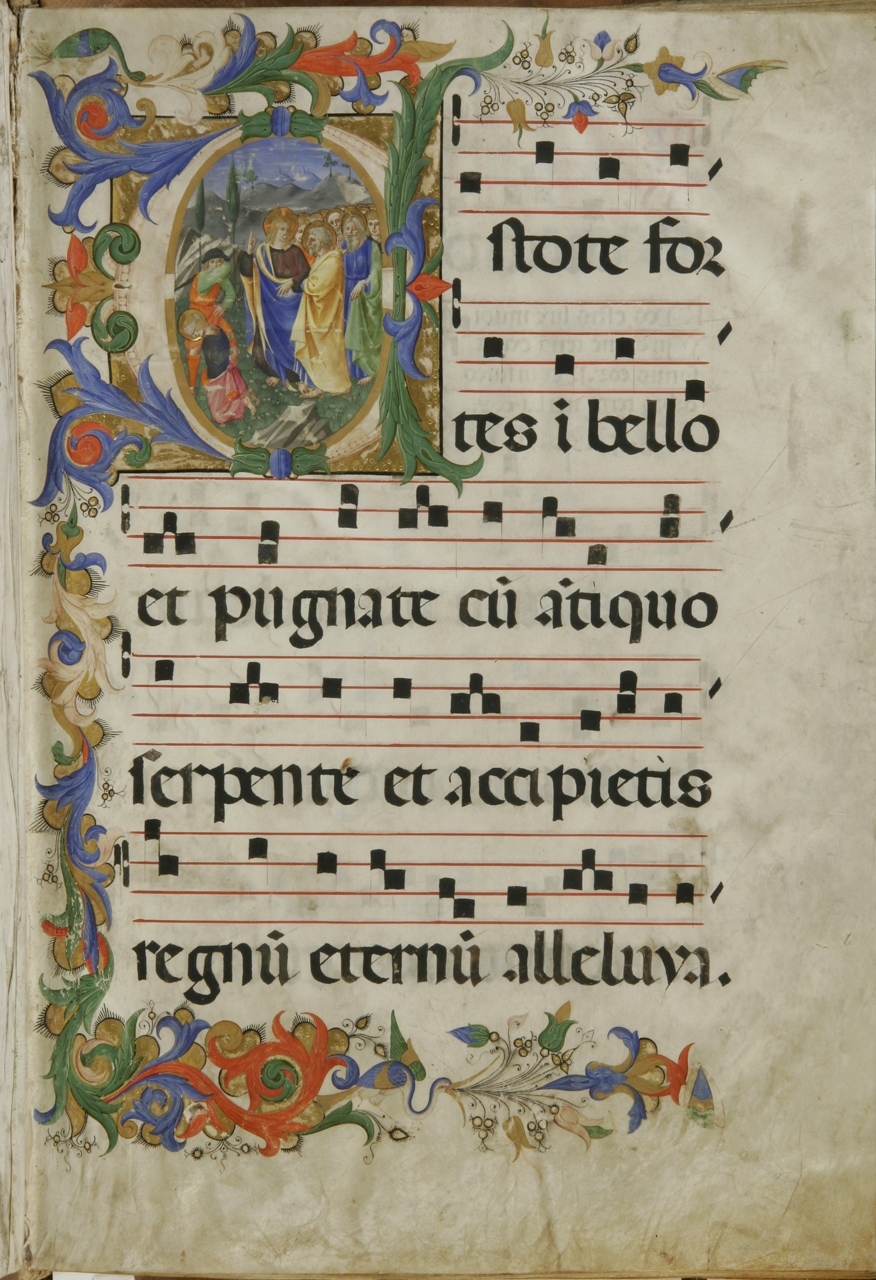 Estote for
tes i bello
et pugnate cū ātiquo
serpente et accipietis
regnū eternū alleluya.